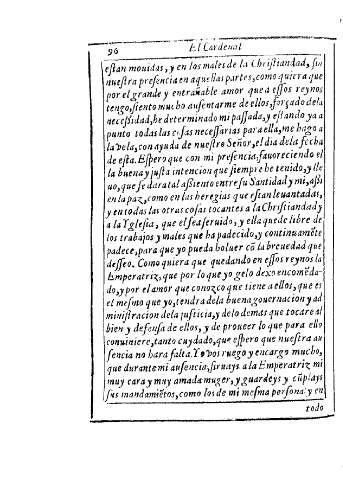 96
El Cardenal
estan mouidas, y en los males de la Christiandad, sin
nuestra presencia en aquellas partes, como quiera que
por el grande y entrañable amor que a essos reynos
tengo, siento mucho ausentarme de ellos, forçado de la
necessidad, he determinado mi passada, y estando ya a
punto todas las cosas necessarias para ella, me hago a
la vela, con ayuda de nuestro Señor, el dia de la fecha
de esta. Espero que con mi presencia, fauoreciendo el
la buena y justa intencion que siempre he tenido, y lle
uo, que se dara tal assiento entre su Santidad y mi, assi
en la paz, como en las heregias que estan leuantadas,
y en todas las otras cosas tocantes a la Christiandad y
a la Yglesia, que el sea seruido, y ella quede libre de
los trabajos y males que ha padecido, y continuamẽte
padece, para que yo pueda boluer cõ la breuedad que
desseo. Como quiera que quedando en essos reynos la
Emperatriz, que por lo que yo gelo dexo encomẽda-
do, y por el amor que conozco que tiene a ellos, que es
el mesmo que yo, tendra de la buena gouernacion y ad
ministracion de la justicia, y de lo demas que tocare al
bien y defensa de ellos, y de proueer lo que para ello
conuiniere, tanto cuydado, que espero que nuestra au
sencia no hara falta. Yo os ruego y encargo mucho,
que durante mi ausencia, siruays a la Emperatriz mi
muy cara y muy amada muger, y guardeys y cũplays
sus mandamiẽtos, como los de mi mesma persona: y en
todo